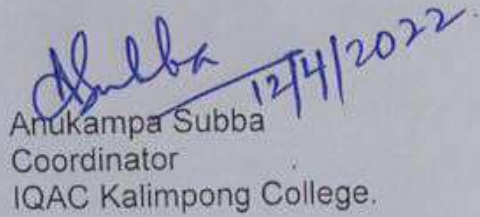 ASubba
12/4/2022.
Anukampa Subba
Coordinator
IQAC Kalimpong College.